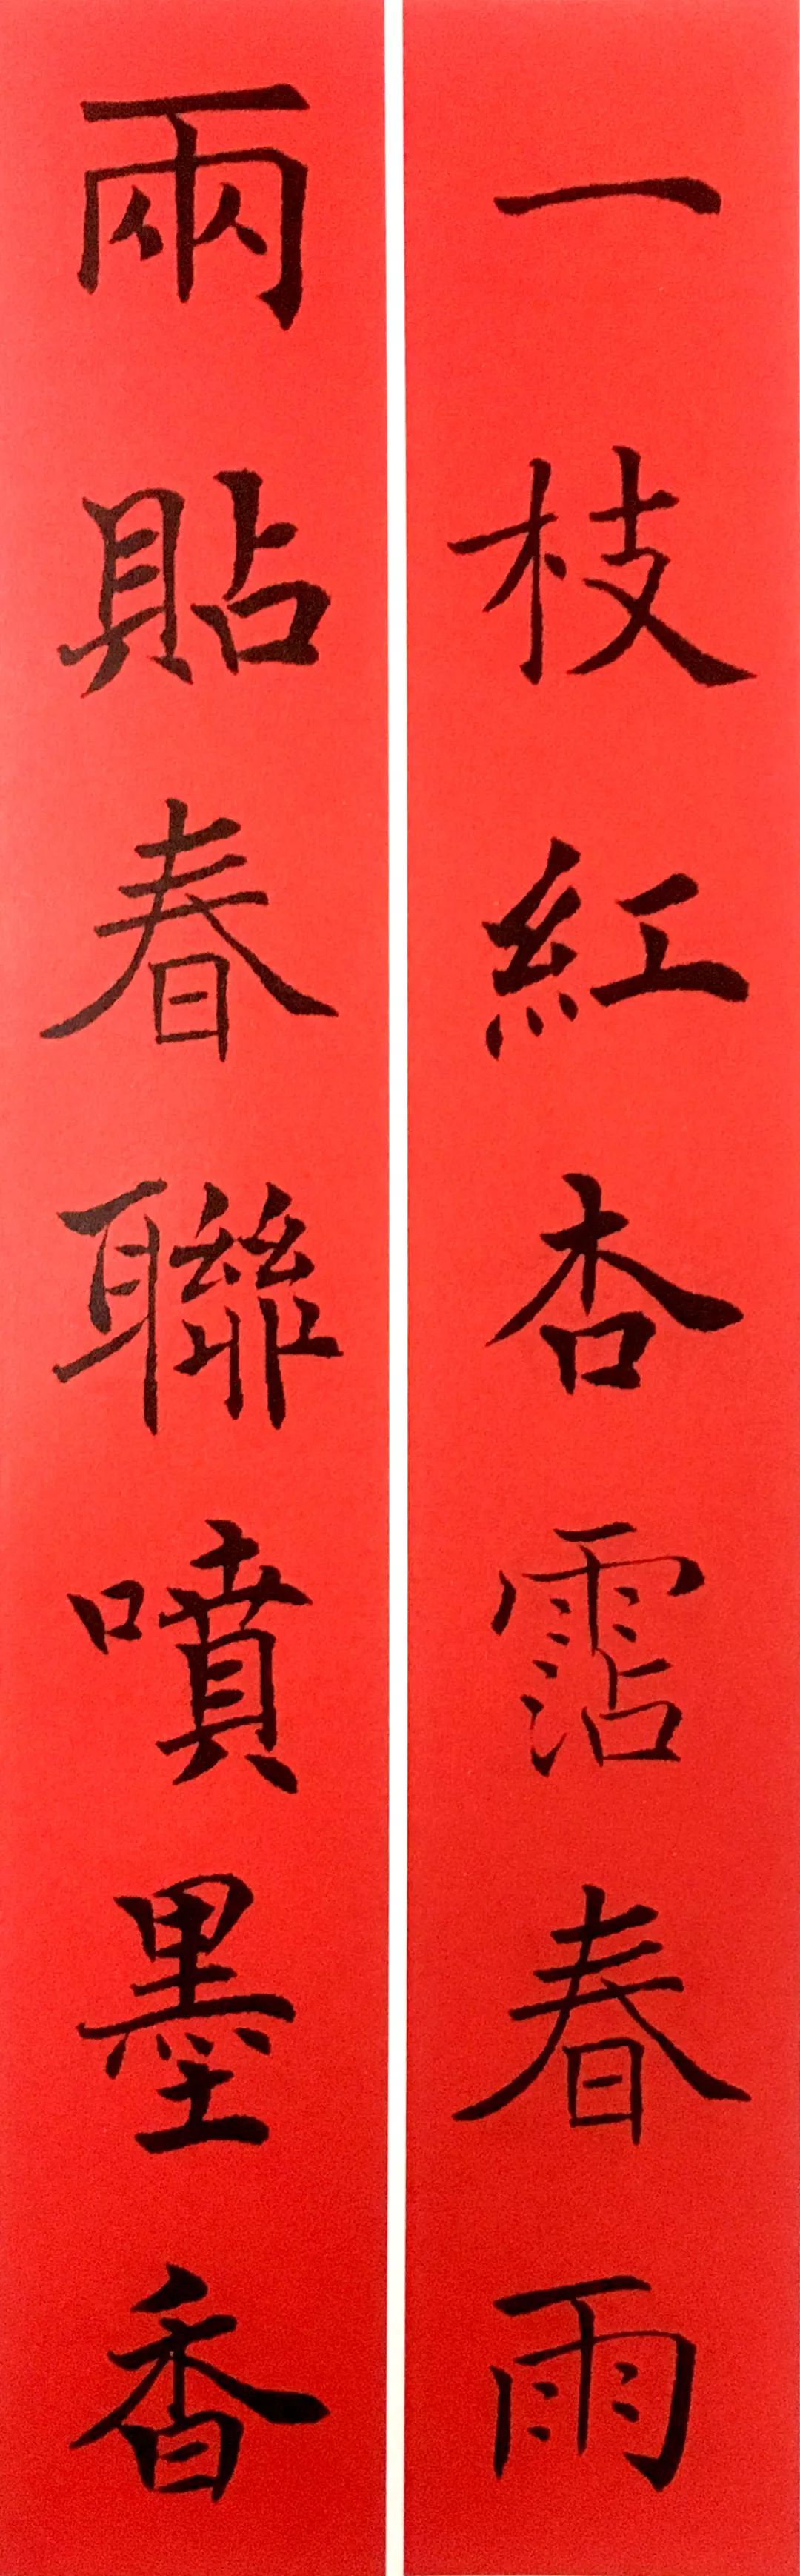 一枝紅杏霑春雨
兩貼春聯噴墨香